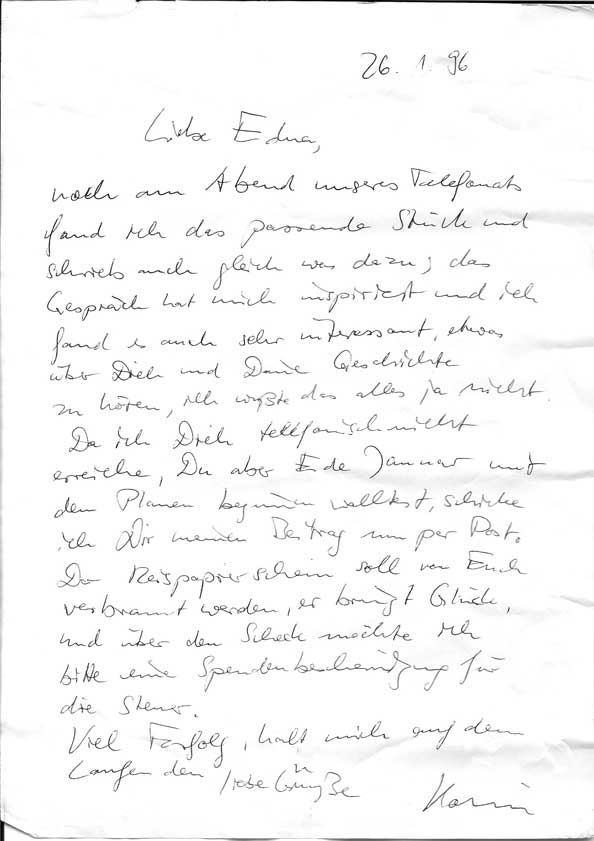 26. 1. 96
Liebe Edna,
noch am Abend unseres Telefonats
fand ich das passende Stück und
schrieb auch gleich was dazu; das
Gespräch hat mich inspiriert und ich
fand es auch sehr interessant, etwas
über Dich und Deine Geschichte
zu hören, ich wußte das alles ja nicht.
Da ich Dich telefonisch nicht
erreiche, Du aber Ende Januar mit
dem Planen beginnen wolltest, schicke
ich Dir meinen Beitrag nun per Post.
Der Reispapierschein soll von Euch
verbrannt werden, er bringt Glück,
und über den Scheck möchte ich
bitte eine Spendenbescheinigung für
die Steuer.
Viel Erfolg, halt mich auf dem
Laufenden liebe Grüße
Karin